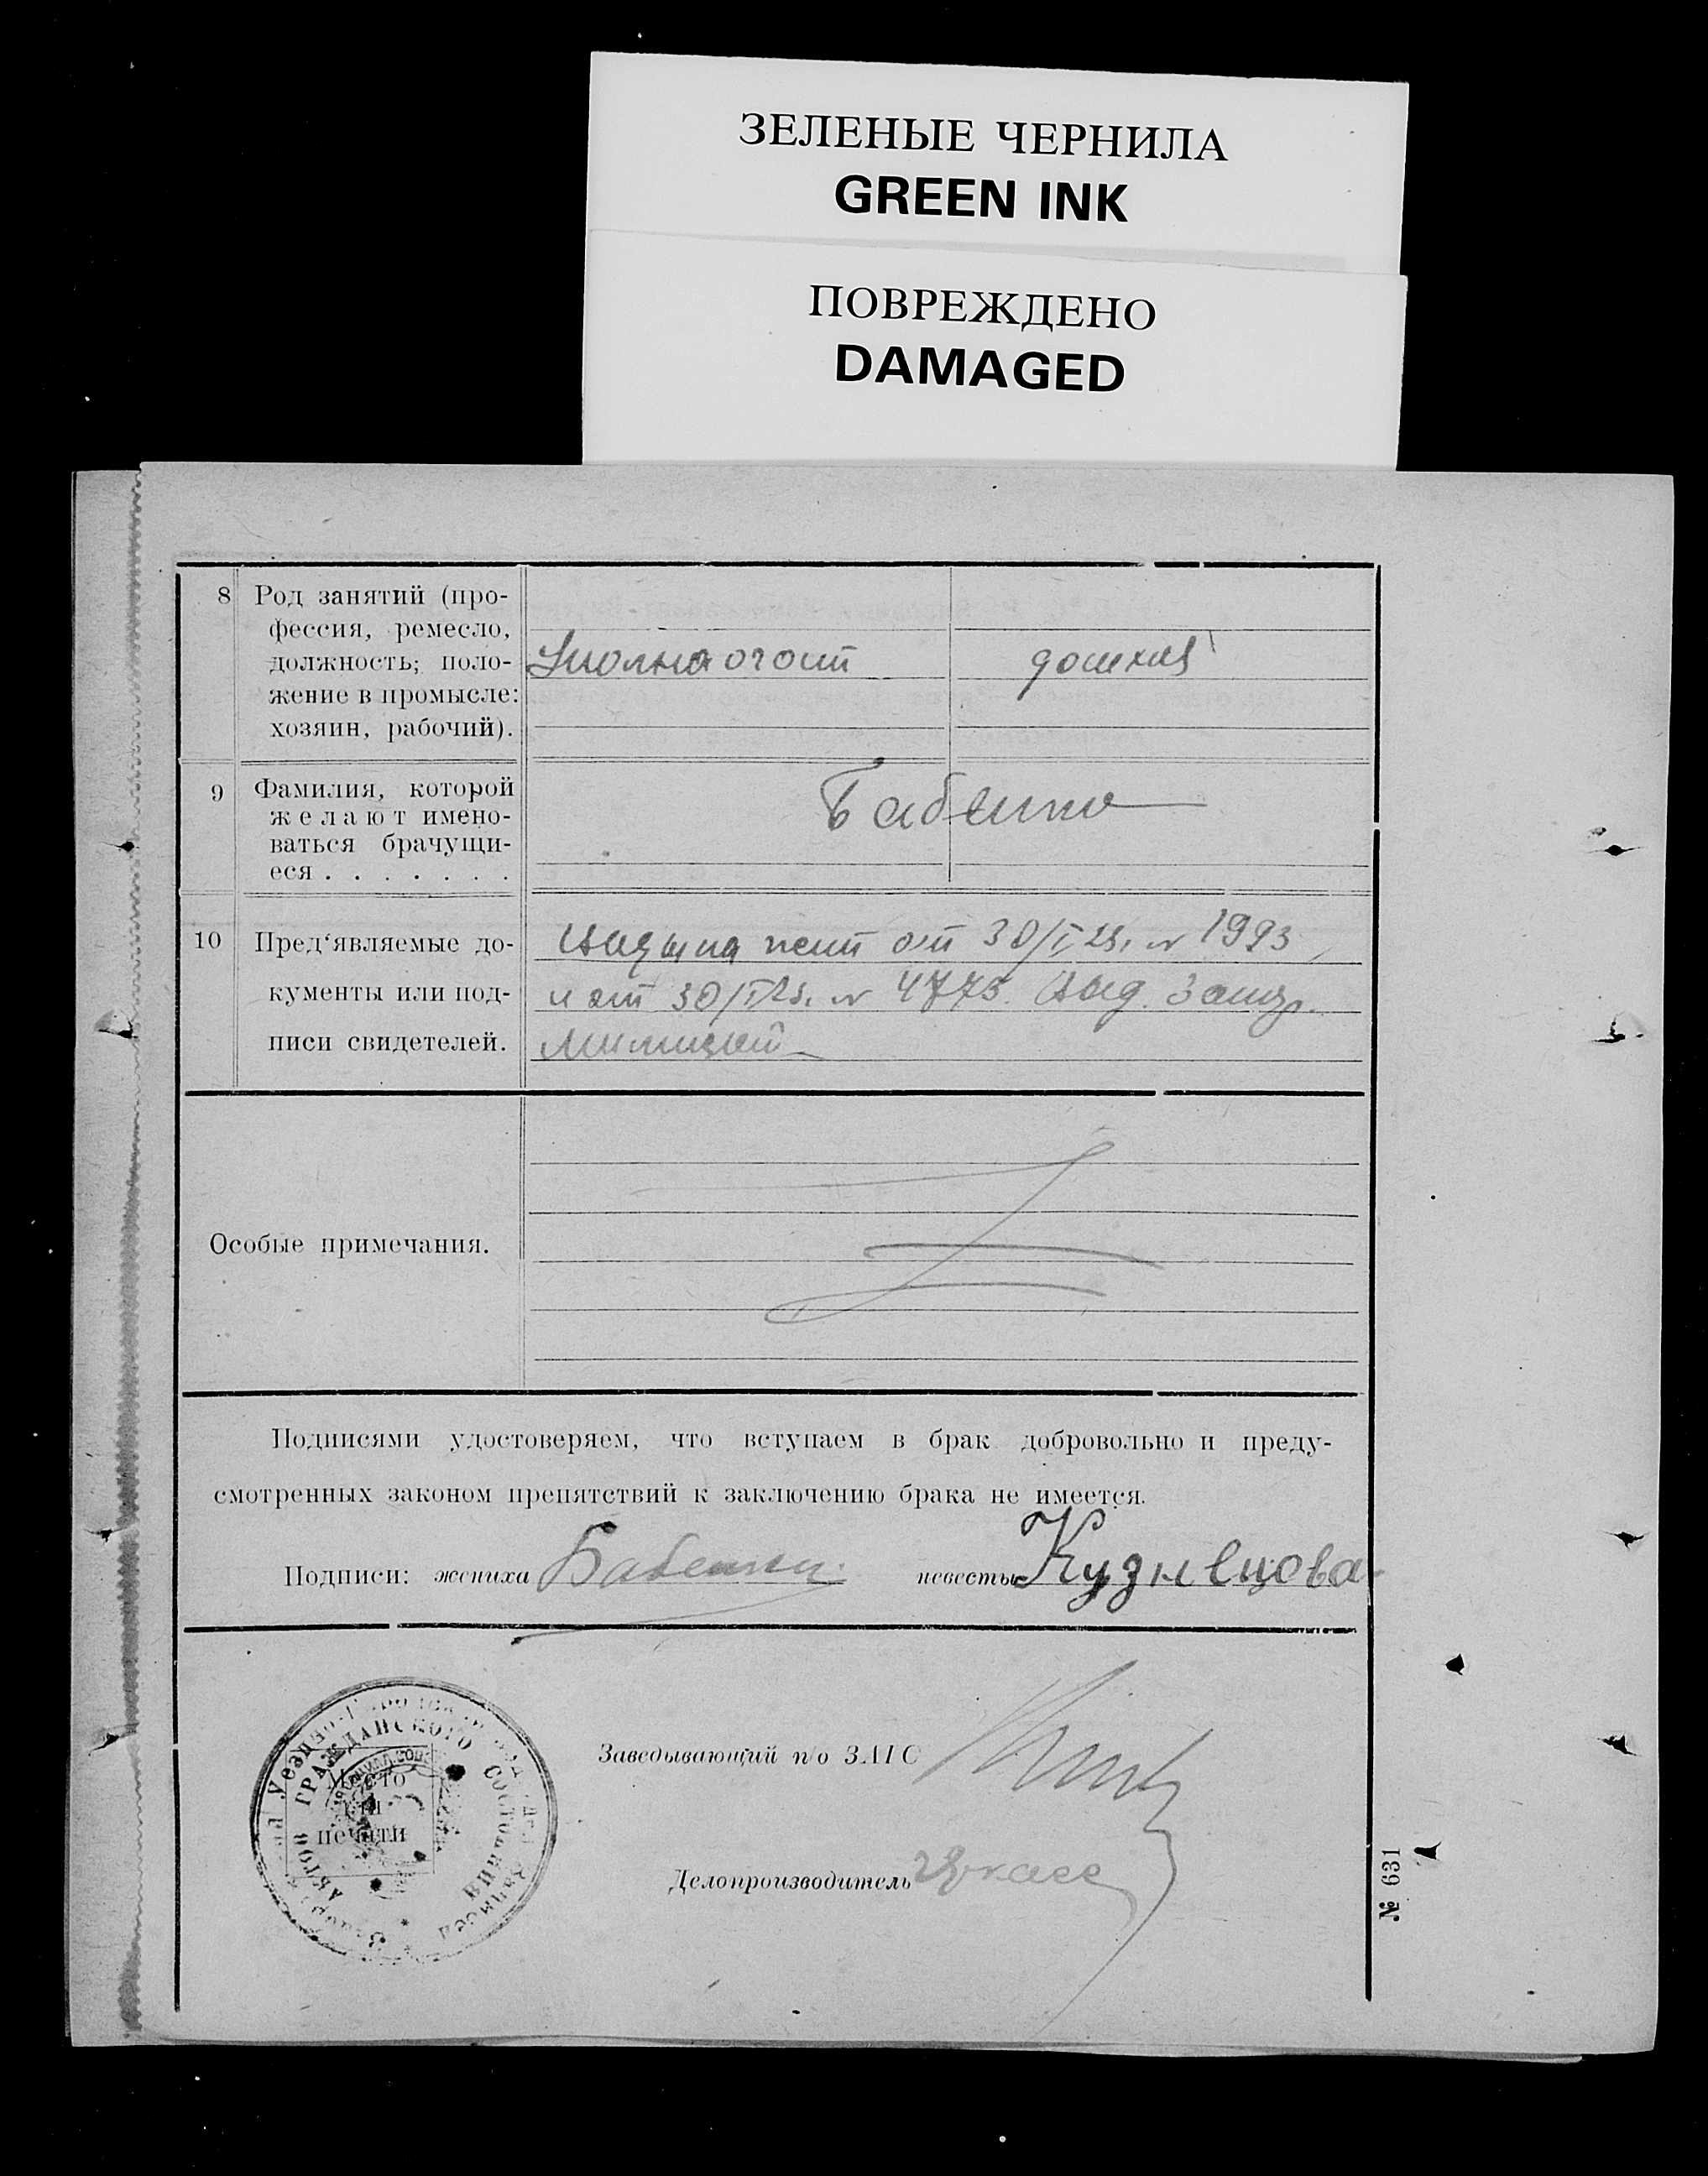 ЗЕЛЕНЫЕ ЧЕРНИЛА
GREEN INK
ПОВРЕЖДЕНО
DAMAGED
8 Род занятий (про-
фессия, ремесло,
должность; поло-
жение в промысле:
хозяин, рабочий).
9 Фамилия, которой
желают имено-
ваться брачущи-
еся . . . . . . .
Бабенко
10 Пред‘являемые до-
кументы или под-
писи свидетелей.
от 30/I 23. № 1993
и от 30/I 23. № 4773. Выд.
милицией
Особые примечания.
Подписями удостоверяем, что вступаем в брак добровольно и преду-
смотренных законом препятствий к заключению брака не имеется.
Подписи: жениха Бабенко невесты Кузнецова
Заведывающий п/о ЗАГС
Делопроизводитель
Место
печати
АКТОВ ГРАЖДАНСКОГО СОСТОЯНИЯ
№ 631